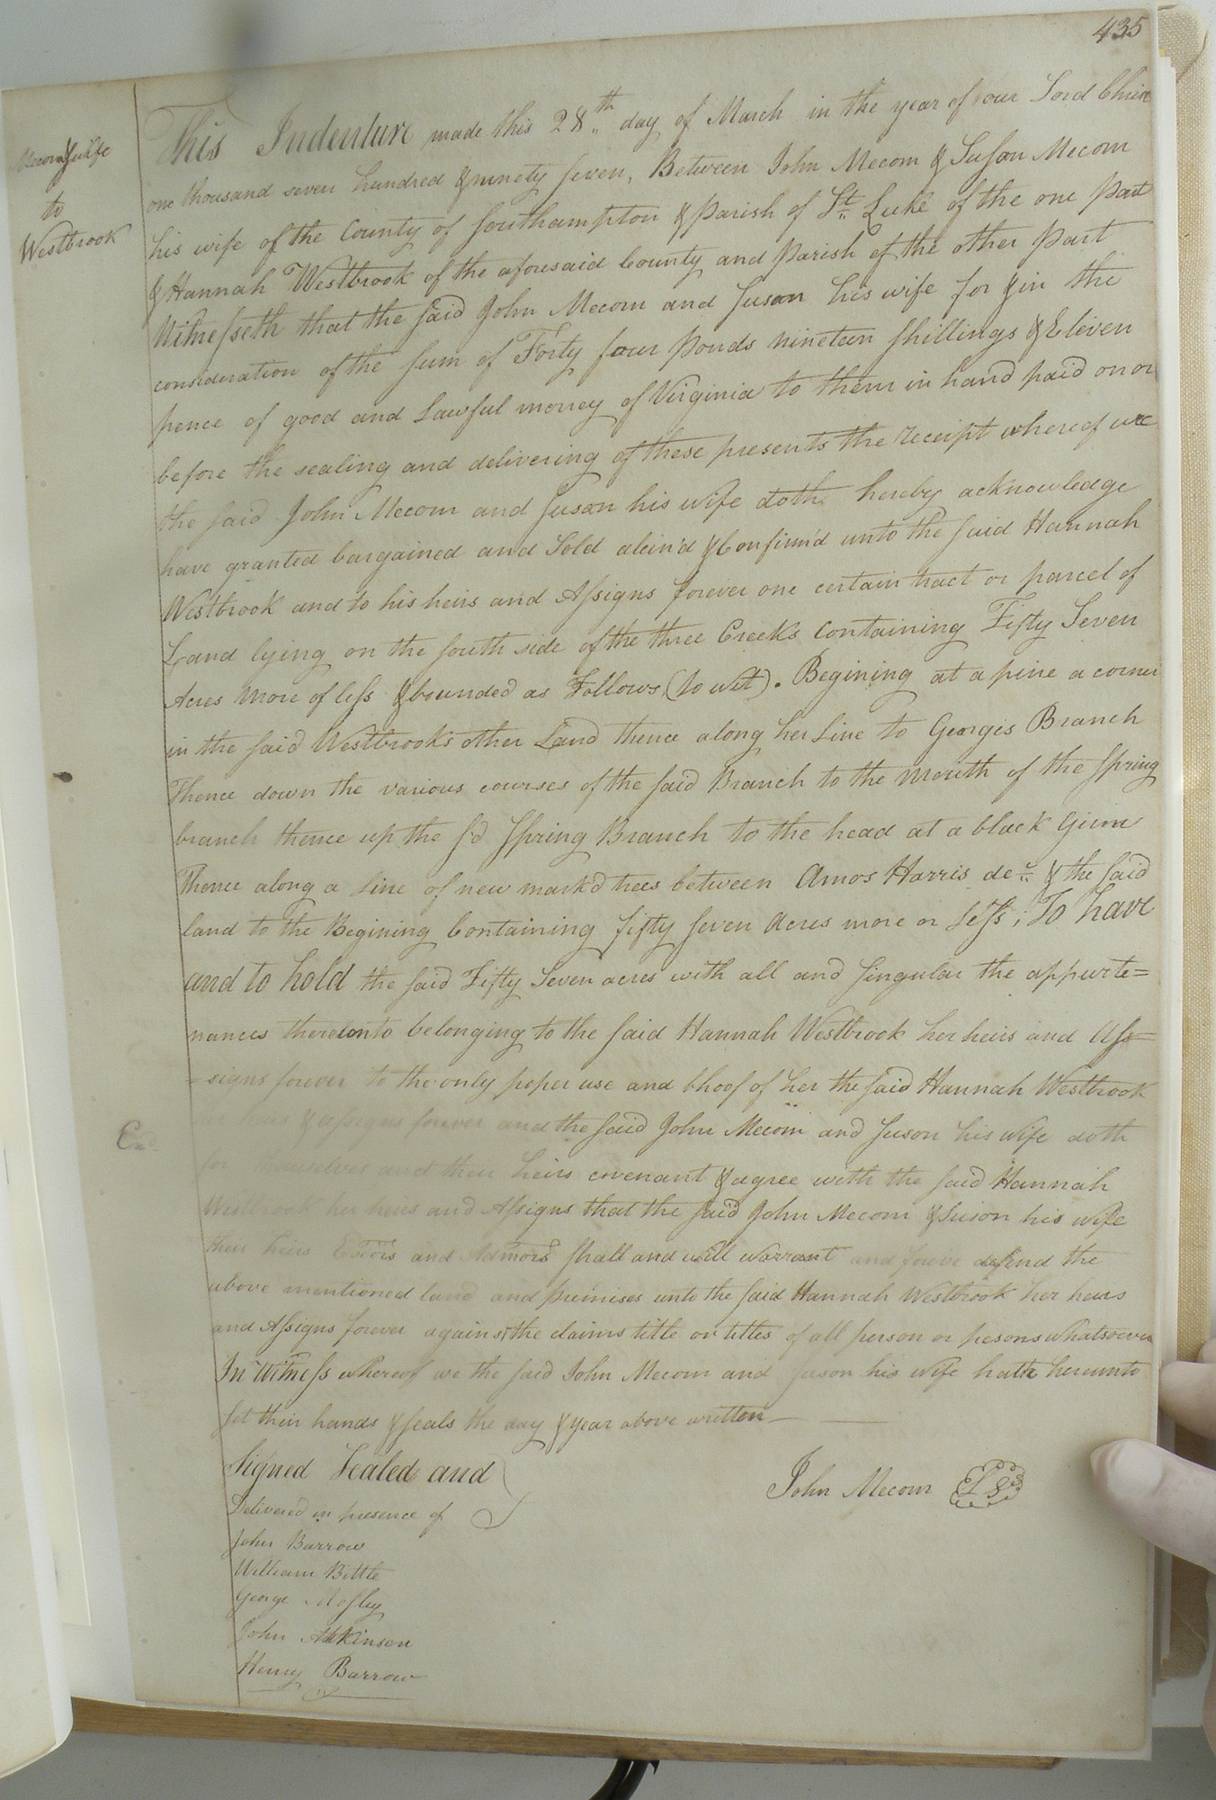 435
Mecom & wife
to
Westbrook
This Indenture made this 28th day of March in the year of our Lord Christ
one thousand seven hundred & ninety seven, Between John Mecom & Susan Mecom
his wife of the County of Southampton & parish of St. Luke of the one Part
& Hannah Westbrook of the aforesaid County and Parish of the other Part
Witnesseth that the said John Mecom and Susan his wife for & in the
consideration of the sum of Forty four Ponds nineteen shillings & Eleven
pence of good and Lawful money of Virginia to them in hand paid on or
before the sealing and delivering of these presents the receipt whereof we
the said John Mecom and Susan his wife doth hereby acknowledge
have granted bargained and Sold alein'd & Confirm'd unto the said Hannah
Westbrook and to his heirs and Assigns forever one certain tract or parcel of
Land lying on the south side of the three Creeks Containing Fifty Seven
Acres more of less & bounded as Follows (to wit). Begining at a pine a corner
in the said Westbrook's other Land thence along her Line to Georges Branch
Thence down the various courses of the said Branch to the mouth of the Spring
branch thence up the sd Spring Branch to the head at a black Gum
Thence along a Line of new mark'd trees between Amos Harris decd. & the said
land to the Begining Containing fifty seven Acres more or Less; To have
and to hold the said Fifty Seven acres with all and singular the appurte=
nances thereonto belonging to the said Hannah Westbrook her heirs and Ass=
=signs forever to the only poper use and bhoof of her the said Hannah Westbrook
heirs & assigns forever and the said John Mecom and Suson his wife doth
for themselves and their heirs covenant & agree with the said Hannah
Westbrook her heirs and Assigns that the said John Mecom & Suson his wife
their heirs Exors and Admors shall and will warrant and forive defend the
above mentioned land and premises unto the said Hannah Westbrook her heirs
and Assigns forever against the claims title or titles of all person or pesons whatsoever
In Witness whereof we the said John Mecom and Suson his wife hath hereunto
set their hands & seals the day & year above written
Signed Sealed and
John Mecom LS
Delivered in presence of
John Barrow
William Bittle
George Mosley
John Atkinson
Henry Barrow